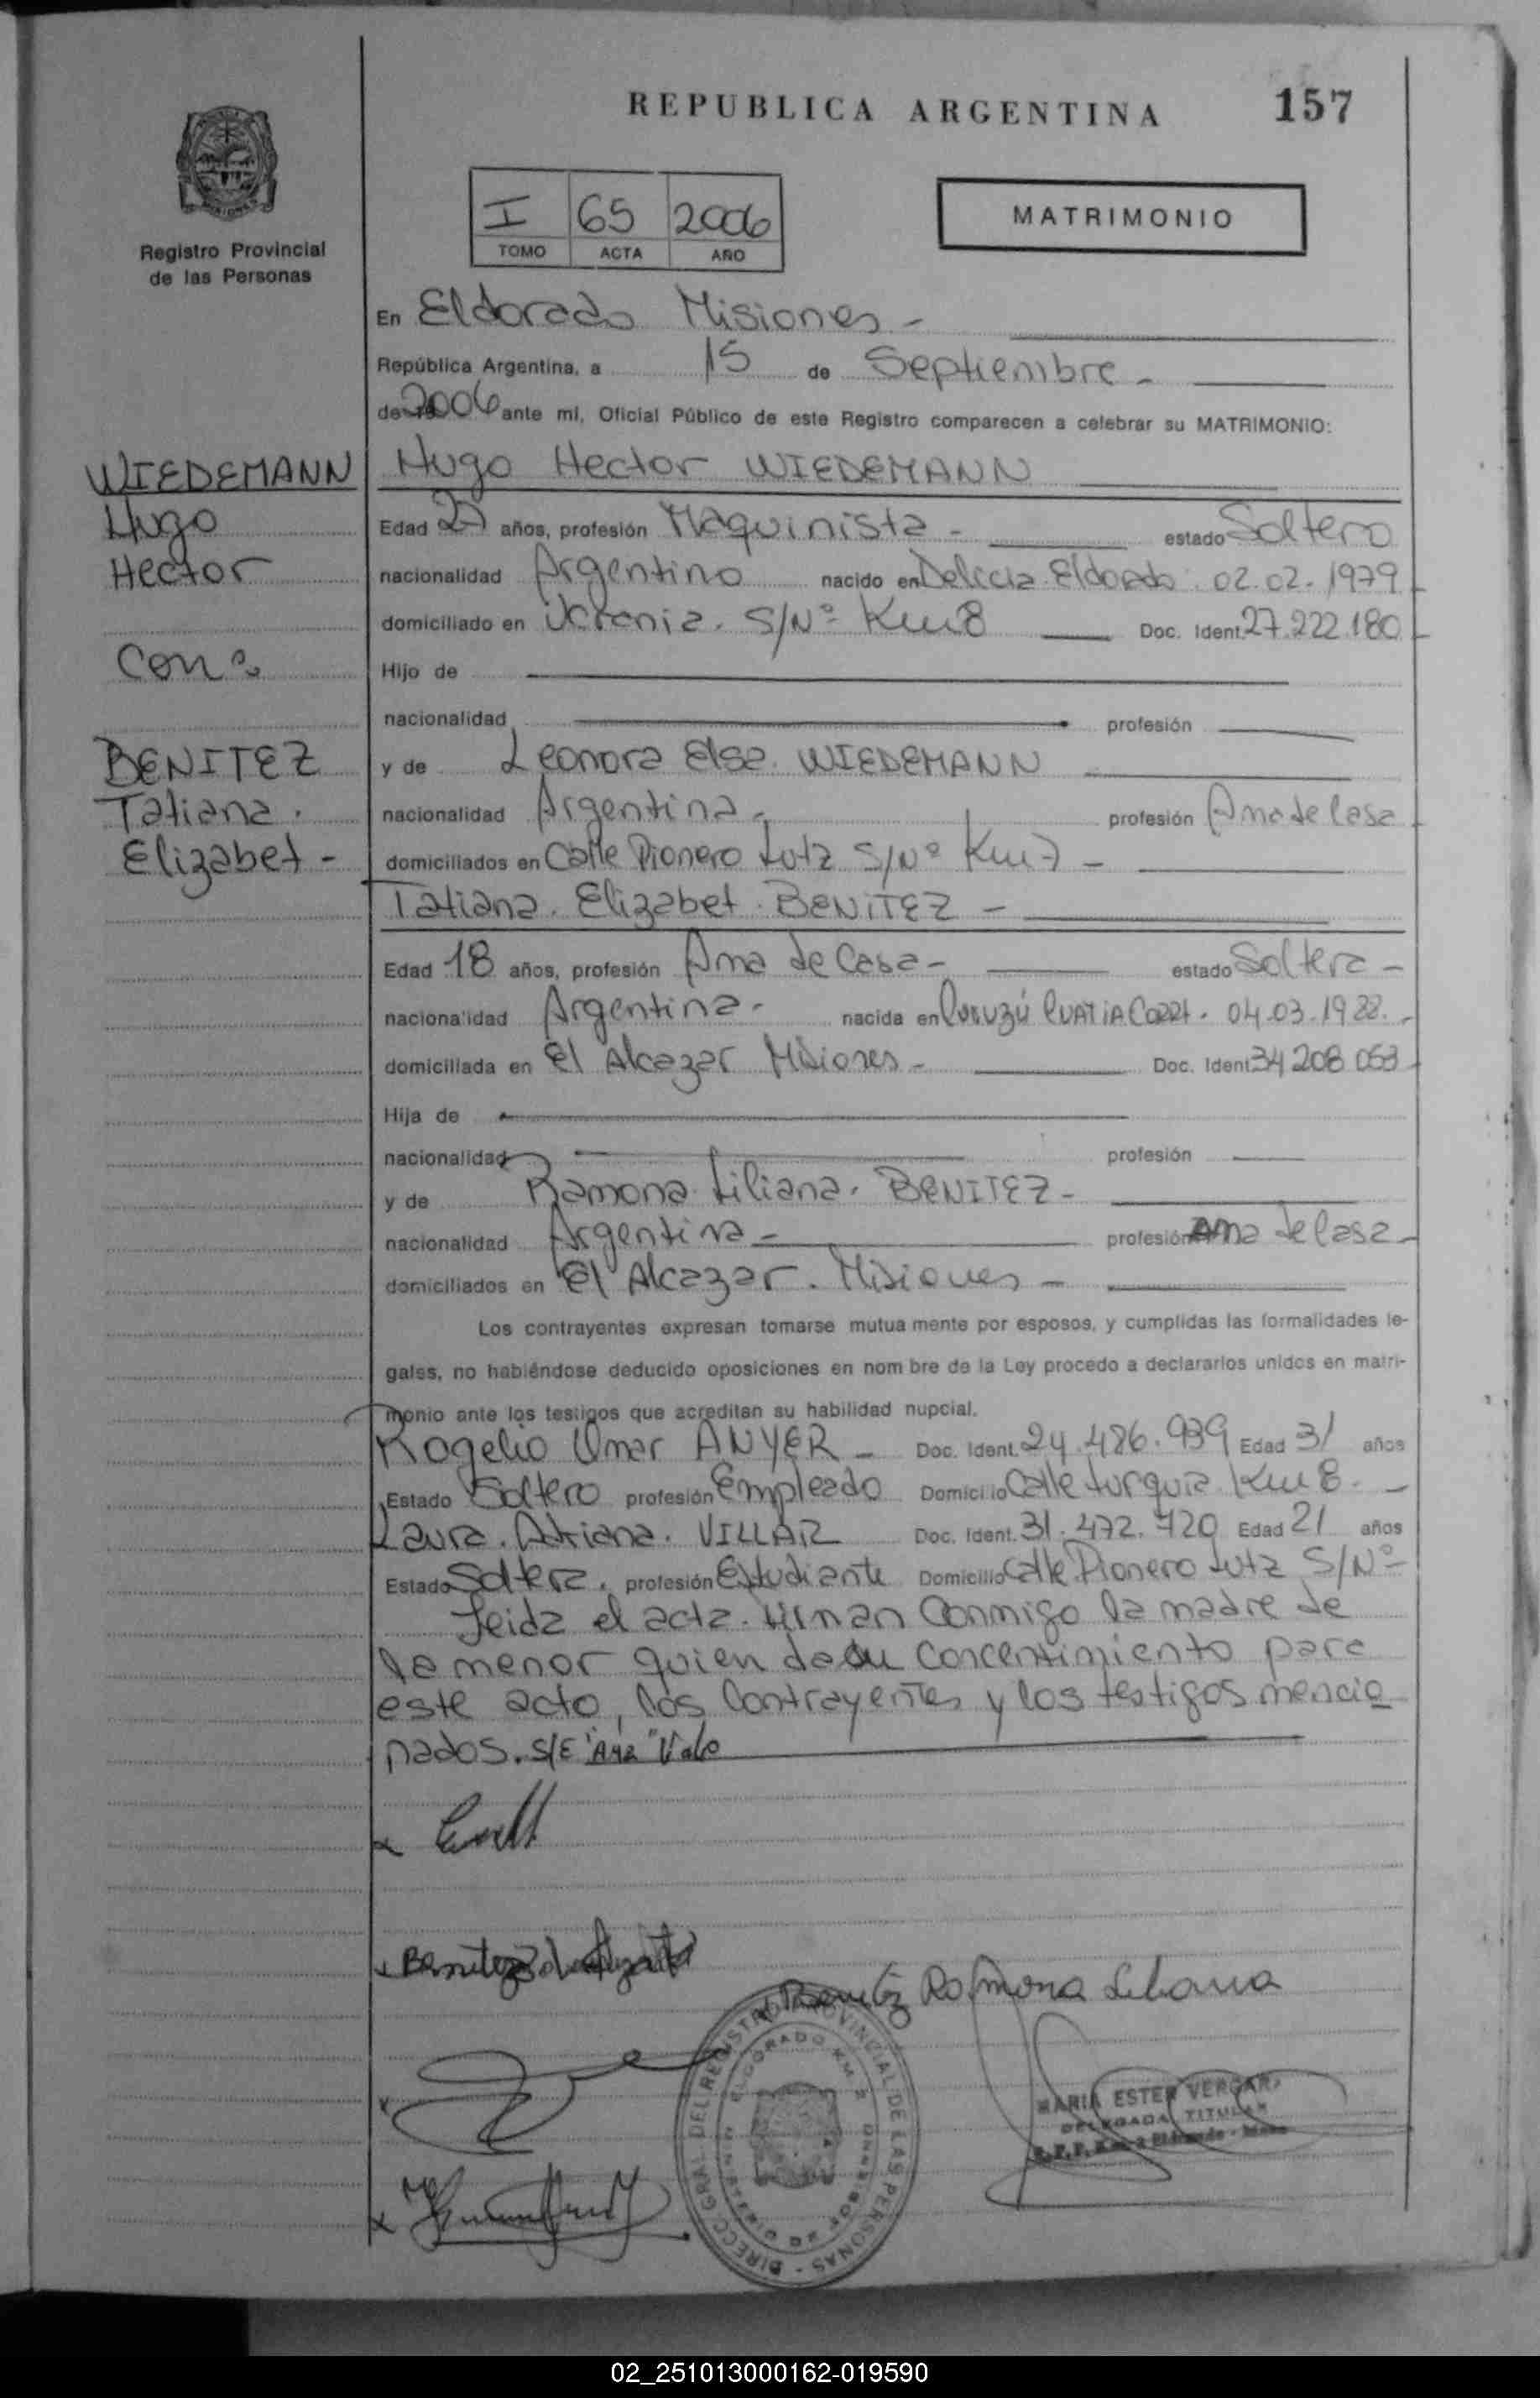 REPUBLICA ARGENTINA 157
I 65 2006
TOMO ACTA AÑO
MATRIMONIO
Registro Provincial
de las Personas
En Eldorado Misiones -
República Argentina, a 15 de Septiembre -
de 2006 ante mi, Oficial Público de este Registro comparecen a celebrar su MATRIMONIO:
WIEDEMANN
Hugo
Hector
Con
BENITEZ
Tatiana.
Elizabet -
Hugo Hector WIEDEMANN
Edad 27 años, profesión Maquinista - estado Soltero
nacionalidad Argentino nacido en Delicia Eldorado. 02.02.1979
domiciliado en Ucrania. S/Nº Km 8 Doc. Ident. 27.222.180
Hijo de
nacionalidad profesión
y de Leonora Elsa. WIEDEMANN
nacionalidad Argentina - profesión Ama de Casa
domiciliados en Calle Pionero Lutz S/Nº Km 7 -
Tatiana. Elizabet. BENITEZ -
Edad 18 años, profesión Ama de Casa - estado Soltera -
nacionalidad Argentina - nacida en Curuzú CUATIA Corrt. 04.03.1988.
domiciliada en El Alcazar Misiones - Doc. Ident. 34 208 053
Hija de
nacionalidad profesión
y de Ramona Liliana. BENITEZ -
nacionalidad Argentina - profesión Ama de Casa -
domiciliados en El Alcazar. Misiones -
Los contrayentes expresan tomarse mutua mente por esposos, y cumplidas las formalidades le-
gales, no habiéndose deducido oposiciones en nom bre de la Ley procedo a declararlos unidos en matri-
monio ante los testigos que acreditan su habilidad nupcial.
Rogelio Omar ANYER - Doc. Ident. 24.486.939 Edad 31 años
Estado Soltero profesión Empleado Domicilio Calle turquia Km 8. -
Laura. Adriana. VILLAR Doc. Ident. 31.472.720 Edad 21 años
Estado Soltera. profesión Estudiante Domicilio Calle Pionero Lutz S/Nº -
Leida el acta. firman Conmigo la madre de
la menor quien da su concentimiento para
este acto, los Contrayentes y los testigos mencio
nados. S/E "Ama" Vale
Benitez
Benitez Ramona Liliana
DIRECC. GRAL. DEL REGISTRO PROVINCIAL DE LAS PERSONAS
ELDORADO KM 2
MARIA ESTER VERGARA
DELEGADA TITULAR
R.P.P. Km. 2 Eldorado - Mnes
02_251013000162-019590